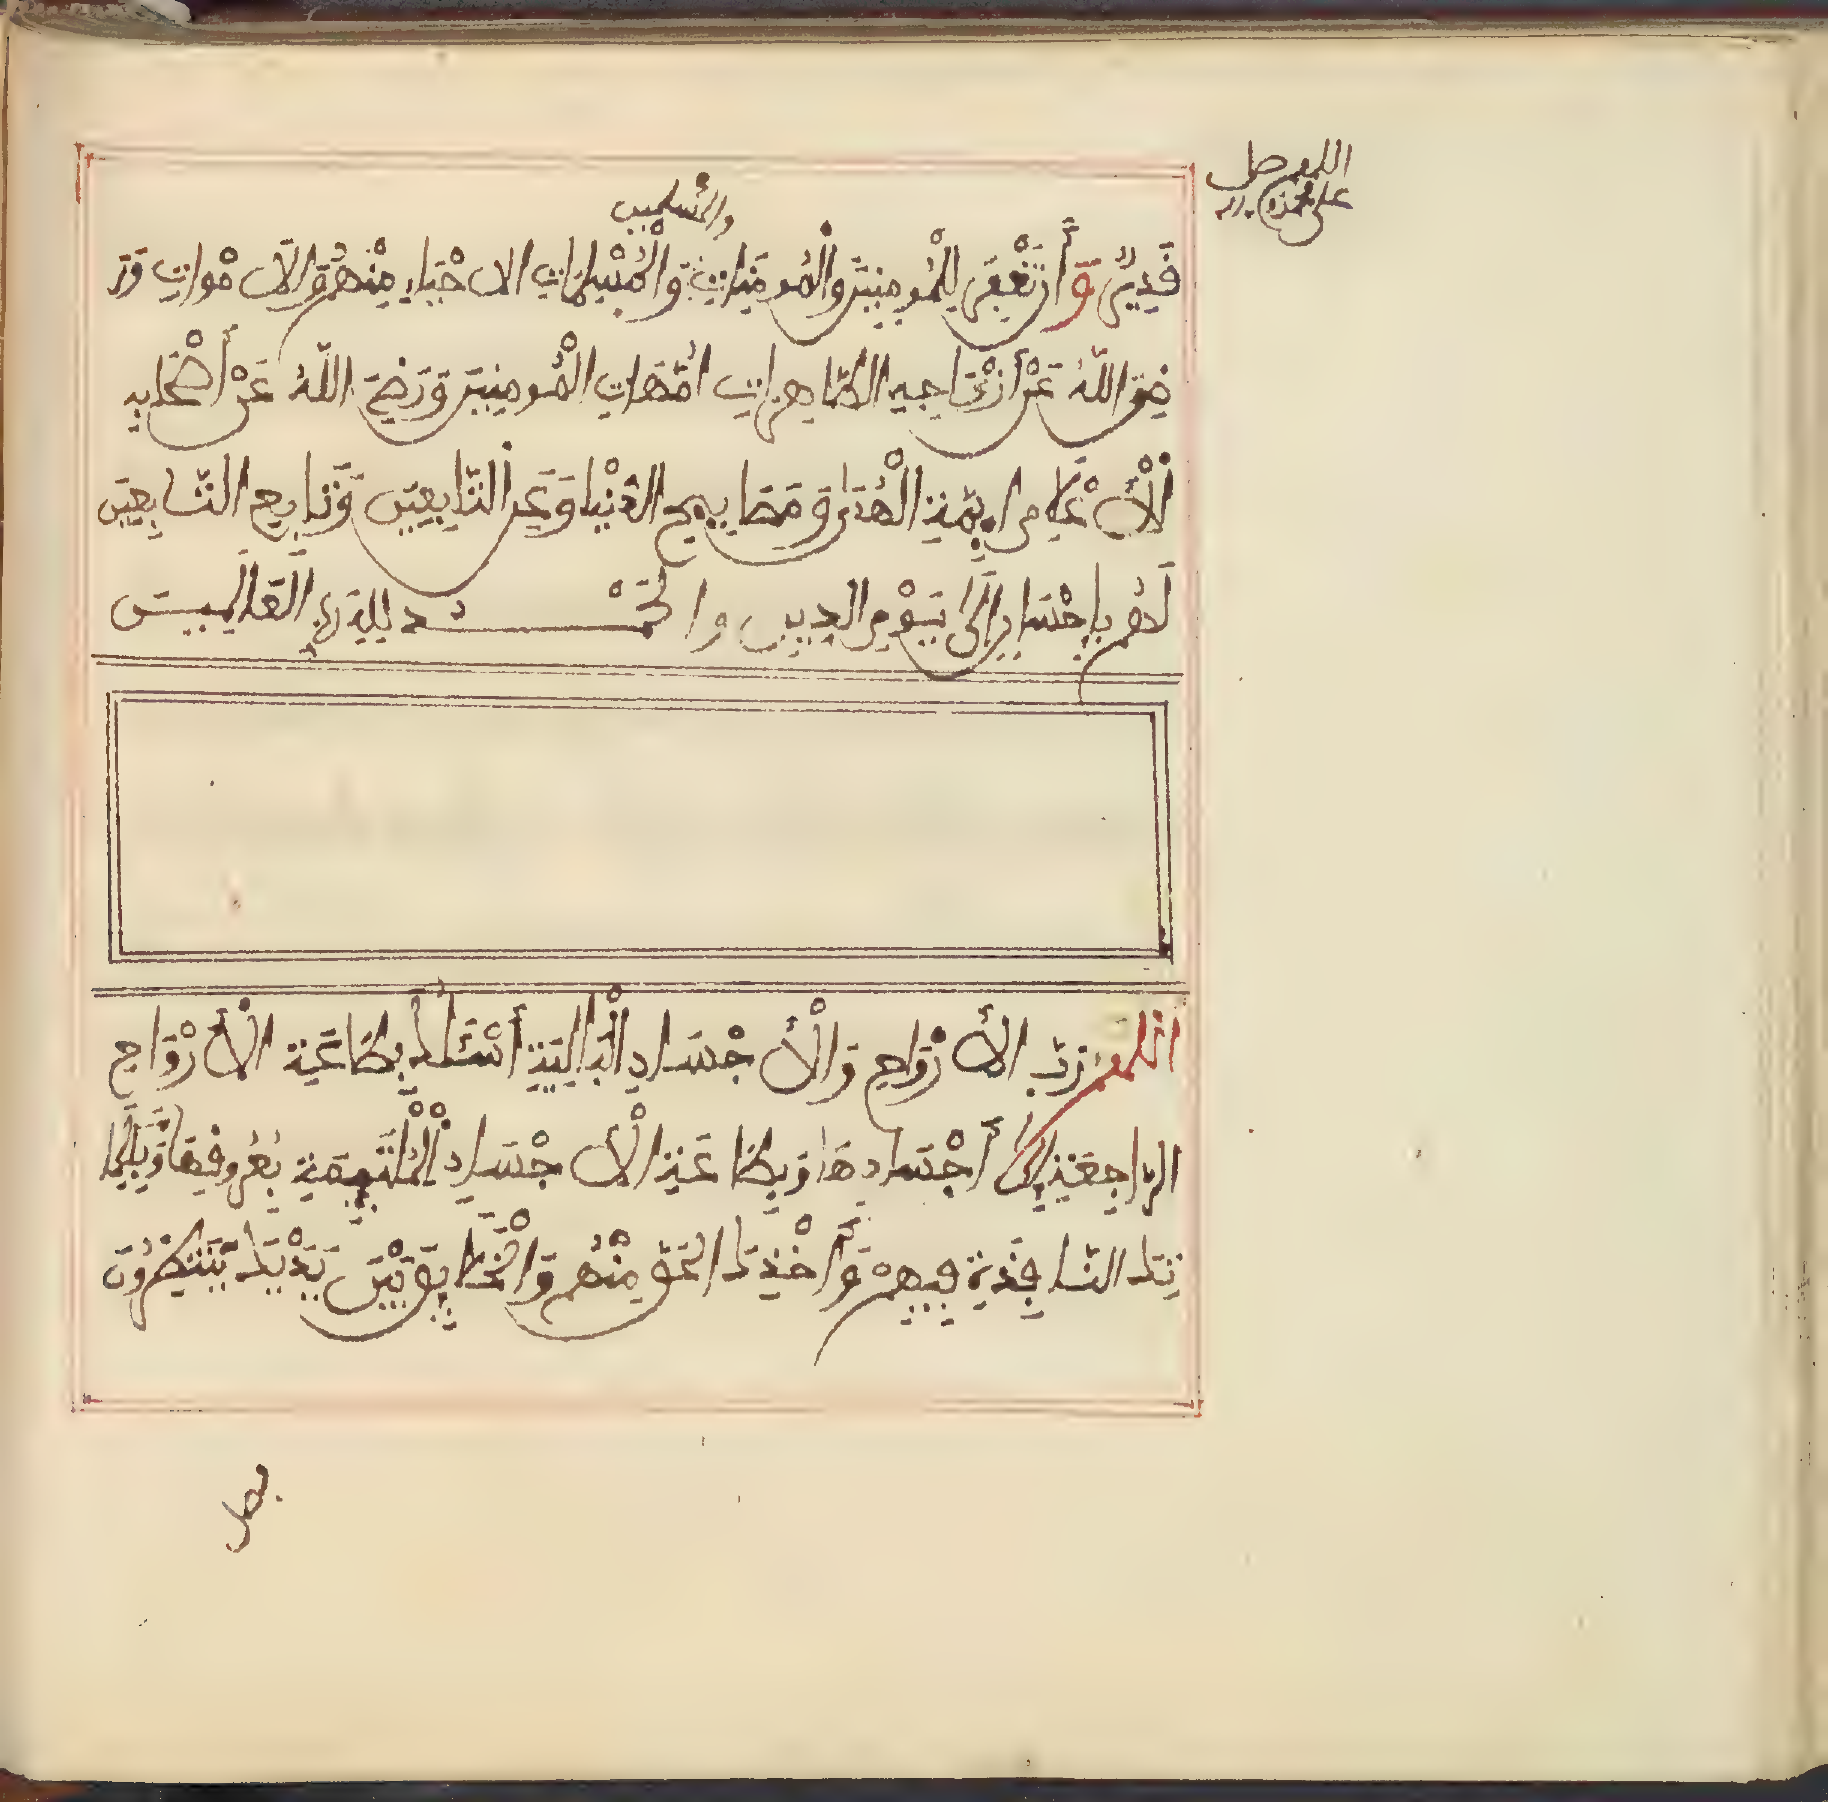 اللهم صل
على محمد وءاله
والمسلمين
قَدِيرٌ وَّأَن تَغْفِرَ لِلْمُومِنِينَ وَالْمُومِنَاتِ وَالْمُسْلِمَاتِ الاَحْيَاءِ مِنْهُمْ وَالاَمْوَاتِ وَرَ
ضِيَ اللَّهُ عَنْ أَزْوَاجِهِ الطَّاهِرَاتِ أُمَّهَاتِ الْمُومِنِينَ وَرَضِيَ اللَّهُ عَنْ أَصْحَابِهِ
الْأَعْلَامِ أَئِمَّةِ الْهُدَى وَمَصَابِيحِ الدُّنْيَا وَعَنِ التَّابِعِينَ وَتَابِعِ التَّابِعِينَ
لَهُم بِإِحْسَانٍ إِلَى يَوْمِ الدِّينِ وَالْحَمْدُ لِلَّهِ رَبِّ الْعَالَمِينَ
اللهم رَبَّ الْأَرْوَاحِ وَالْأَجْسَادِ الْبَالِيَةِ أَسْئَلُكَ بِطَاعَةِ الْأَرْوَاحِ
الرَّاجِعَةِ إِلَى أَجْسَادِهَا وَبِطَاعَةِ الْأَجْسَادِ الْمُلْتَئِمَةِ بِعُرُوقِهَا وَبِكَلِمَا
تِكَ النَّافِذَةِ فِيهِمْ وَأَخْذِكَ الْحَقَّ مِنْهُمْ وَالْخَلَائِقُ بَيْنَ يَدَيْكَ يَنْتَظِرُونَ
فصل